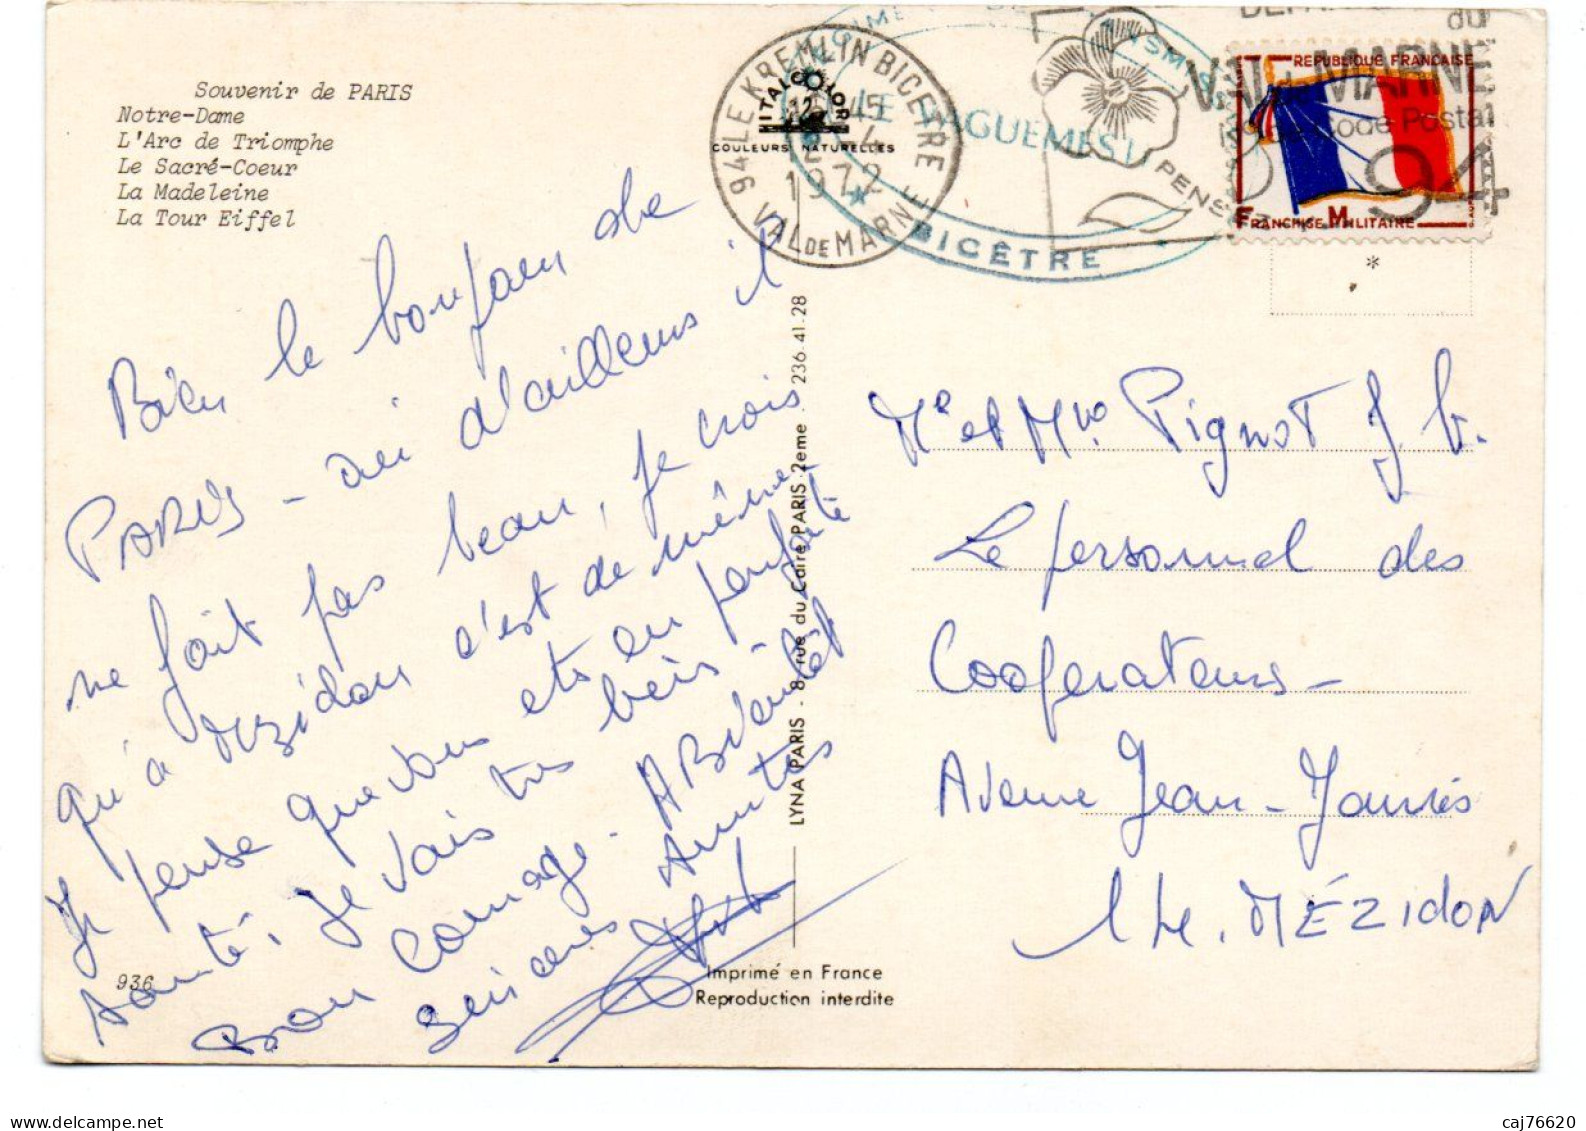 Souvenir de PARIS
Notre-Dame
L'Arc de Triomphe
Le Sacré-Coeur
La Madeleine
La Tour Eiffel
94 LE KREMLIN BICETRE
VAL DE MARNE
1972
ITALCOLOR
COULEURS NATURELLES
LE VAGUEMEST
BICÊTRE
du
VAL de MARNE
Code Postal
94
PENS
REPUBLIQUE FRANCAISE
FRANCHISE MILITAIRE
*
Bien le bonjour de
PARIS - d'ailleurs il
ne fait pas beau, je crois
qu'à Mézidon c'est de même.
Je pense que vous êtes en parfaite
santé. Je vais très bien.
Bon courage. A Bientôt
Sincères Amitiés
LYNA PARIS - 8, rue du Caire PARIS 2eme . 236.41.28
Mr et Mme Pignot J
Le personnel des
Cooperateurs-
Avenue Jean-Jaurès
14. MÉZIDON
936
Imprimé en France
Reproduction interdite
delcampe.net
caj76620